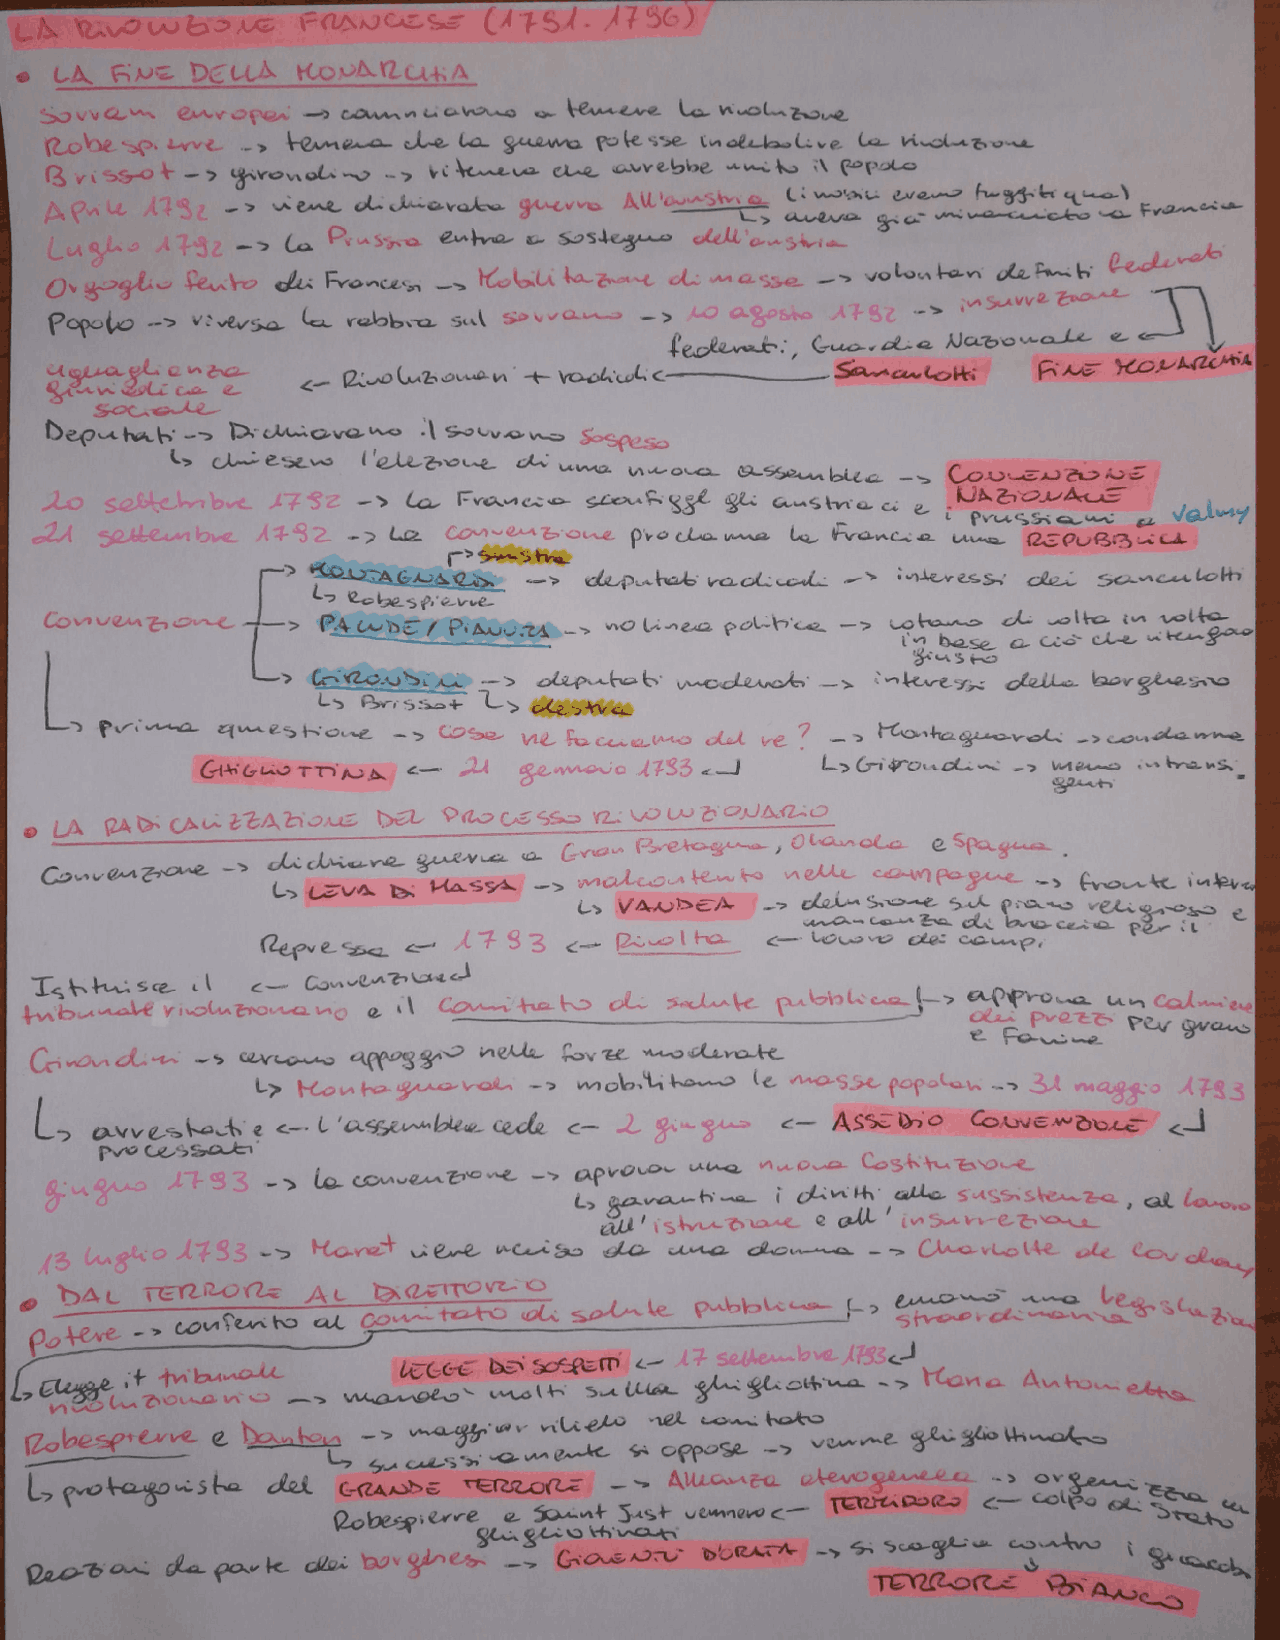 LA RIVOLUZIONE FRANCESE (1791-1796)
• LA FINE DELLA MONARCHIA
Sovrani europei -> cominciarono a temere la rivoluzione
Robespierre -> temeva che la guerra potesse indebolire la rivoluzione
Brissot -> girondino -> riteneva che avrebbe unito il popolo
Aprile 1792 -> viene dichiarata guerra All'austria (i nobili erano fuggiti qua)
↳ aveva già minacciato la Francia
Luglio 1792 -> la Prussia entra a sostegno dell'austria
Orgoglio ferito dei Francesi -> Mobilitazione di massa -> volontari definiti federati
Popolo -> riversa la rabbia sul sovrano -> 10 agosto 1792 -> insurrezione
federati, Guardia Nazionale e <-
uguaglianza giuridica e sociale <- Rivoluzionari + radicali <- Sanculotti FINE MONARCHIA
Deputati -> Dichiarano il sovrano sospeso
↳ chiesero l'elezione di una nuova assemblea -> CONVENZIONE NAZIONALE
20 settembre 1792 -> la Francia sconfigge gli austriaci e i prussiani a Valmy
21 settembre 1792 -> La convenzione proclama la Francia una REPUBBLICA
-> sinistra
-> MONTAGNARDI -> deputati radicali -> interessi dei sanculotti
↳ Robespierre
Convenzione -> PALUDE / PIANURA -> no linea politica -> votano di volta in volta
in base a ciò che ritengono
giusto
-> GIRONDINI -> deputati moderati -> interessi della borghesia
↳ Brissot ↳ destra
↳ prima questione -> cosa ne facciamo del re? -> Montagnardi -> condanna
GHIGLIOTTINA <- 21 gennaio 1793 <- ↳ Girondini -> meno intransi
genti
• LA RADICALIZZAZIONE DEL PROCESSO RIVOLUZIONARIO
Convenzione -> dichiara guerra a Gran Bretagna, Olanda e Spagna.
↳ LEVA DI MASSA -> malcontento nelle campagne -> fronte interno
↳ VANDEA -> delusione sul piano religioso e
mancanza di braccia per il
Repressa <- 1793 <- Rivolta <- lavoro dei campi
Istituisce il <- Convenzione <-
tribunale rivoluzionario e il Comitato di salute pubblica -> approva un calmiere
dei prezzi per grano
e farine
Girondini -> cercano appoggio nelle forze moderate
↳ Montagnardi -> mobilitano le masse popolari -> 31 maggio 1793
↳ arrestati e <- L'assemblea cede <- 2 giugno <- ASSEDIO CONVENZIONE <-
processati
giugno 1793 -> la convenzione -> aprova una nuova Costituzione
↳ garantiva i diritti alla sussistenza, al lavoro
all'istruzione e all'insurrezione
13 luglio 1793 -> Marat viene ucciso da una donna -> Charlotte de Corday
• DAL TERRORE AL DIRETTORIO
Potere -> conferito al comitato di salute pubblica -> emanò una legislazione
straordinaria
LEGGE DEI SOSPETTI <- 17 settembre 1793 <-
↳ Elegge il tribunale
rivoluzionario -> mandò molti sulla ghigliottina -> Maria Antonietta
Robespierre e Danton -> maggior rilievo nel comitato
↳ successivamente si oppose -> venne ghigliottinato
↳ protagonista del GRANDE TERRORE -> Alleanza eterogenea -> organizza un
Robespierre e Saint Just vennero <- TERMIDORO <- colpo di Stato
ghigliottinati
Reazioni da parte dei borghesi -> GIOVENTÙ DORATA -> si scaglia contro i giacobini
TERRORE BIANCO